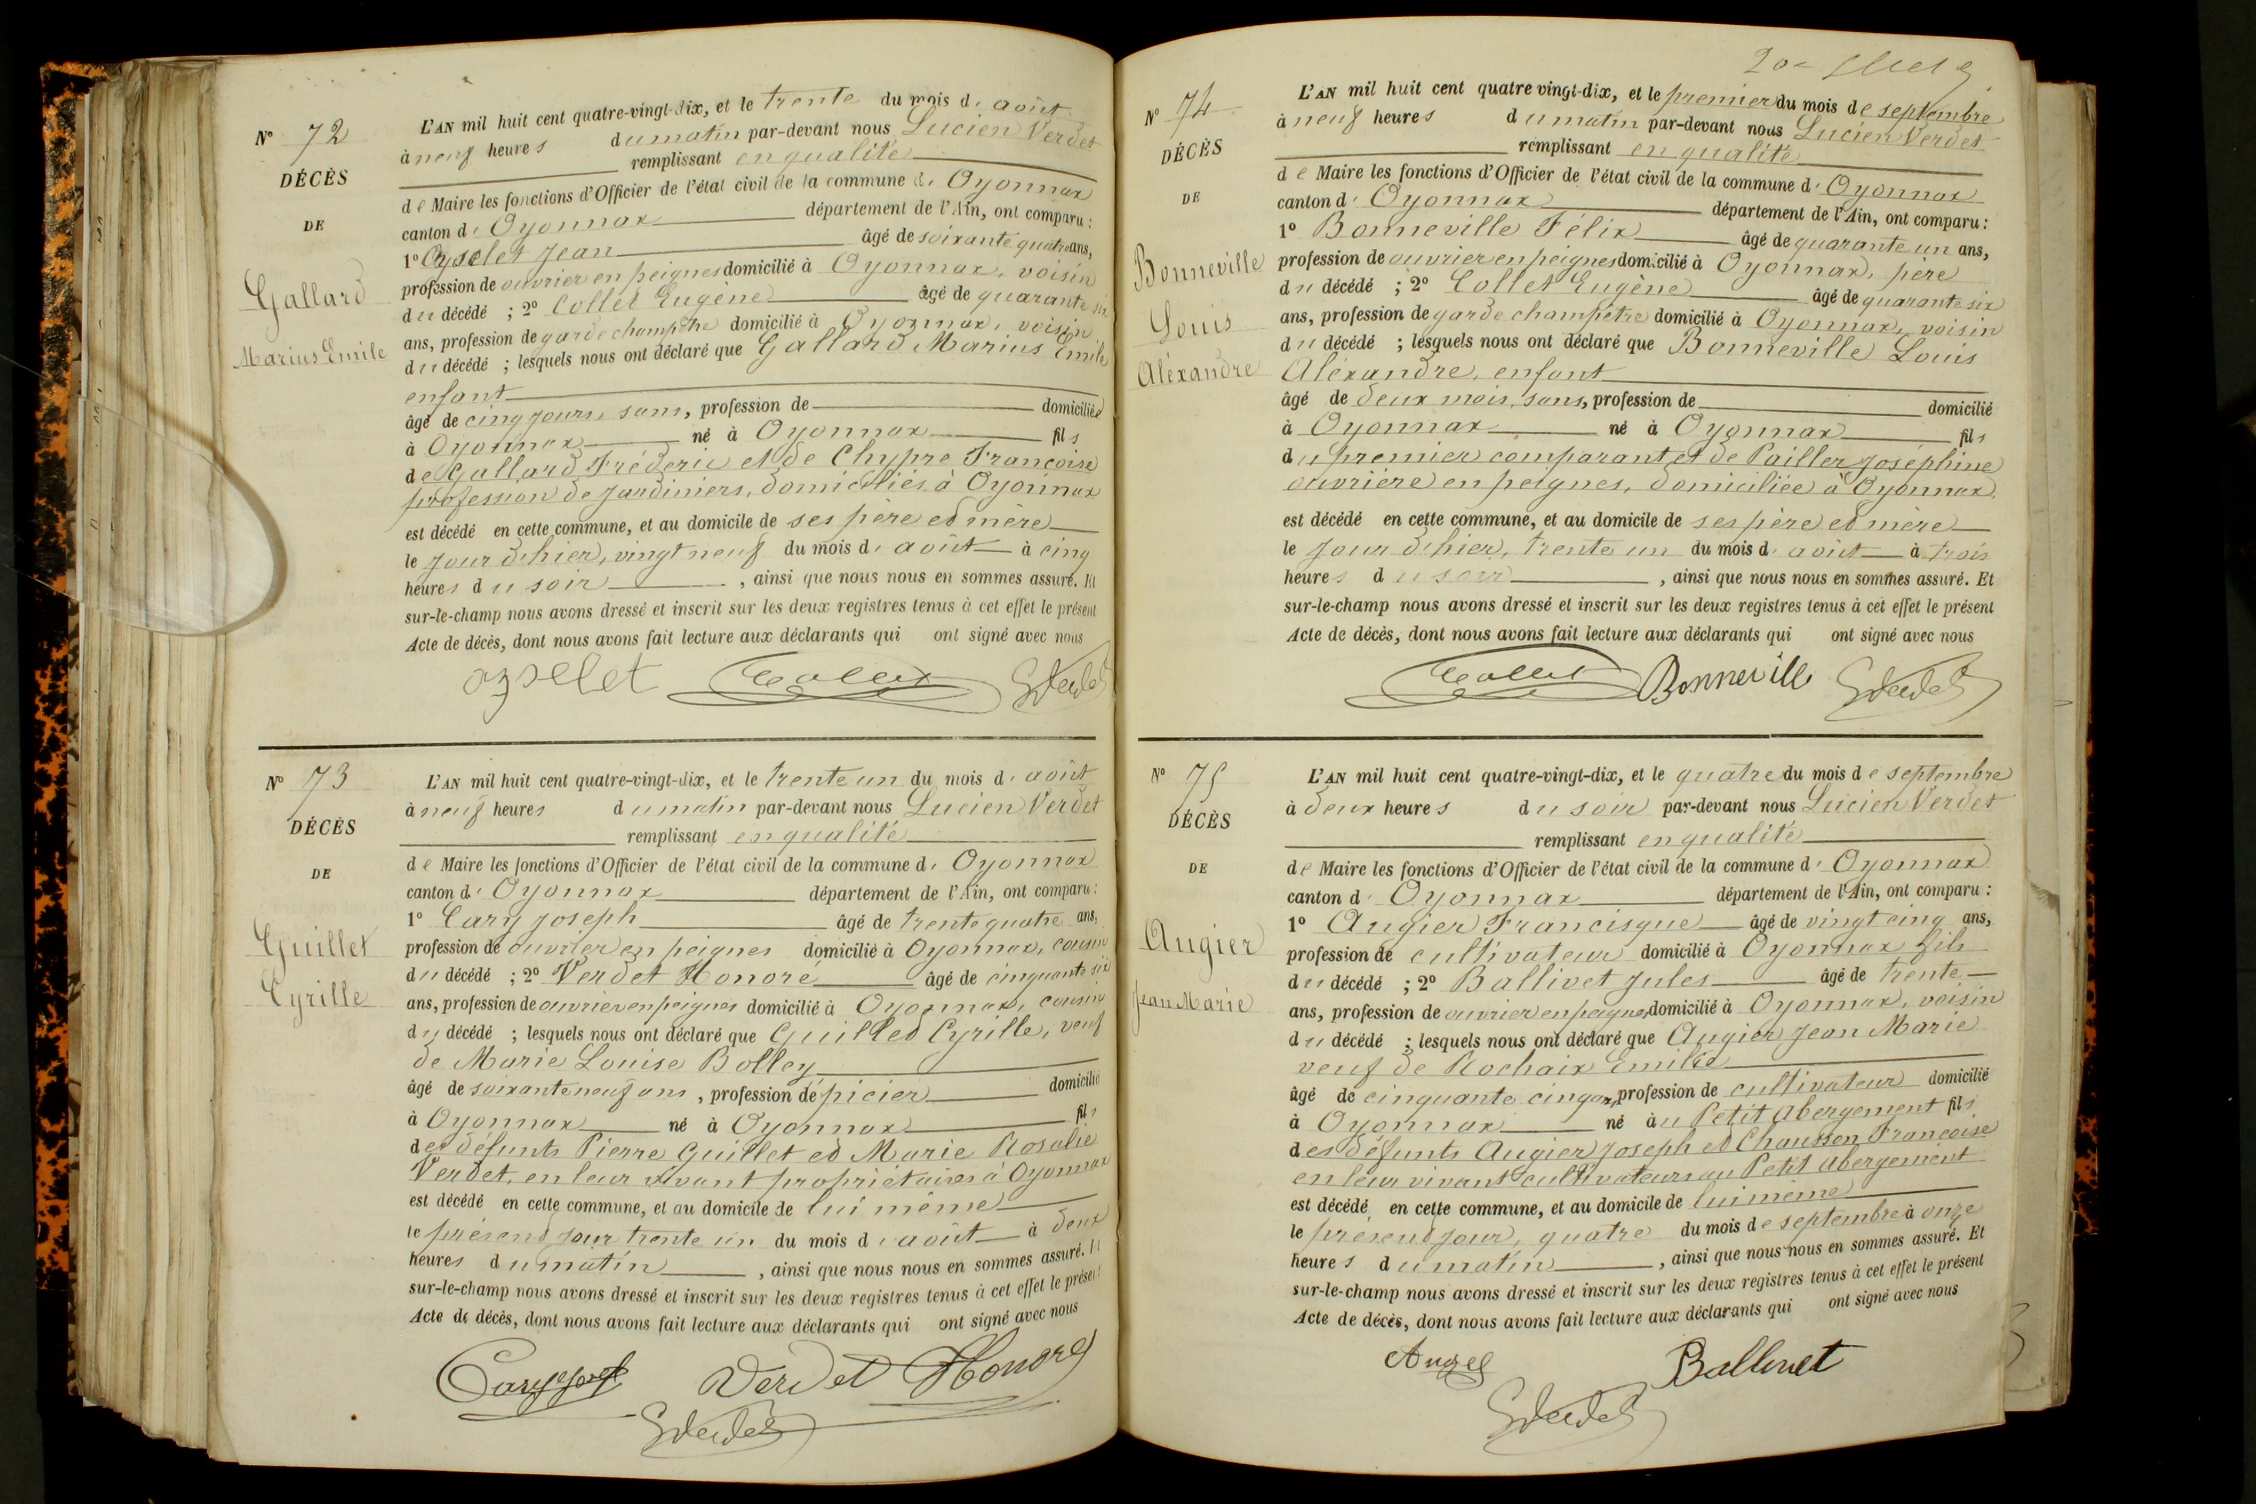 N° 72
DÉCÈS
DE
Gallard
Marius Emile
L'AN mil huit cent quatre-vingt-dix, et le trente du mois d' août
à neuf heures du matin par-devant nous Lucien Verdet
remplissant en qualité
de Maire les fonctions d'Officier de l'état civil de la commune d' Oyonnax
canton d' Oyonnax département de l'Ain, ont comparu :
1° Oyselet Jean âgé de soixante quatre ans,
profession de ouvrier en peignes domicilié à Oyonnax, voisin
du décédé ; 2° Collet Eugène âgé de quarante six
ans, profession de garde champêtre domicilié à Oyonnax, voisin
du décédé ; lesquels nous ont déclaré que Gallard Marius Emile
enfant
âgé de cinq jours, sans, profession de domicilié
à Oyonnax né à Oyonnax fils
de Gallard Fréderic et de Chypre Françoise
profession de jardiniers, domiciliés à Oyonnax
est décédé en cette commune, et au domicile de ses père et mère
le jour d'hier, vingt neuf du mois d' août à cinq
heures du soir , ainsi que nous nous en sommes assuré. Et
sur-le-champ nous avons dressé et inscrit sur les deux registres tenus à cet effet le présent
Acte de décès, dont nous avons fait lecture aux déclarants qui ont signé avec nous
ozselet Collet GVerdet
N° 73
DÉCÈS
DE
Guillet
Cyrille
L'AN mil huit cent quatre-vingt-dix, et le trente un du mois d' août
à neuf heures du matin par-devant nous Lucien Verdet
remplissant en qualité
de Maire les fonctions d'Officier de l'état civil de la commune d' Oyonnax
canton d' Oyonnax département de l'Ain, ont comparu :
1° Cary Joseph âgé de trente quatre ans,
profession de ouvrier en peignes domicilié à Oyonnax, cousin
du décédé ; 2° Verdet Honoré âgé de cinquante six
ans, profession de ouvrier en peignes domicilié à Oyonnax, cousin
du décédé ; lesquels nous ont déclaré que Guillet Cyrille, veuf
de Marie Louise Bolley
âgé de soixante neuf ans , profession d'épicier domicilié
à Oyonnax né à Oyonnax fils
des défunts Pierre Guillet et Marie Rosalie
Verdet, en leur vivant propriétaires à Oyonnax
est décédé en cette commune, et au domicile de lui même
le présent jour trente un du mois d' août à deux
heures du matin , ainsi que nous nous en sommes assuré. Et
sur-le-champ nous avons dressé et inscrit sur les deux registres tenus à cet effet le présent
Acte de décès, dont nous avons fait lecture aux déclarants qui ont signé avec nous
Cary Joseph Verdet Honoré
GVerdet
N° 74
DÉCÈS
DE
Bonneville
Louis
Aléxandre
L'AN mil huit cent quatre vingt-dix, et le premier du mois de septembre
à neuf heures du matin par-devant nous Lucien Verdet
remplissant en qualité
de Maire les fonctions d'Officier de l'état civil de la commune d' Oyonnax
canton d' Oyonnax département de l'Ain, ont comparu :
1° Bonneville Félix âgé de quarante un ans,
profession de ouvrier en peignes domicilié à Oyonnax, père
du décédé ; 2° Collet Eugène âgé de quarante six
ans, profession de garde champêtre domicilié à Oyonnax, voisin
du décédé ; lesquels nous ont déclaré que Bonneville Louis
Aléxandre, enfant
âgé de deux mois, sans, profession de domicilié
à Oyonnax né à Oyonnax fils
du premier comparant et de Pailler Joséphine
ouvrière en peignes, domiciliée à Oyonnax
est décédé en cette commune, et au domicile de ses père et mère
le jour d'hier, trente un du mois d' août à trois
heures du soir , ainsi que nous nous en sommes assuré. Et
sur-le-champ nous avons dressé et inscrit sur les deux registres tenus à cet effet le présent
Acte de décès, dont nous avons fait lecture aux déclarants qui ont signé avec nous
Collet Bonneville GVerdet
N° 75
DÉCÈS
DE
Augier
Jean Marie
L'AN mil huit cent quatre-vingt-dix, et le quatre du mois de septembre
à deux heures du soir par-devant nous Lucien Verdet
remplissant en qualité
de Maire les fonctions d'Officier de l'état civil de la commune d' Oyonnax
canton d' Oyonnax département de l'Ain, ont comparu :
1° Augier Francisque âgé de vingt cinq ans,
profession de cultivateur domicilié à Oyonnax fils
du décédé ; 2° Ballivet Jules âgé de trente
ans, profession de ouvrier en peignes domicilié à Oyonnax, voisin
du décédé ; lesquels nous ont déclaré que Augier Jean Marie
veuf de Rochaix Emilie
âgé de cinquante cinq ans, profession de cultivateur domicilié
à Oyonnax né au Petit Abergement fils
des défunts Augier Joseph et Chaussen Françoise
en leur vivant cultivateurs au Petit Abergement
est décédé en cette commune, et au domicile de lui même
le présent jour, quatre du mois de septembre à onze
heures du matin , ainsi que nous nous en sommes assuré. Et
sur-le-champ nous avons dressé et inscrit sur les deux registres tenus à cet effet le présent
Acte de décès, dont nous avons fait lecture aux déclarants qui ont signé avec nous
Augier Ballivet
GVerdet